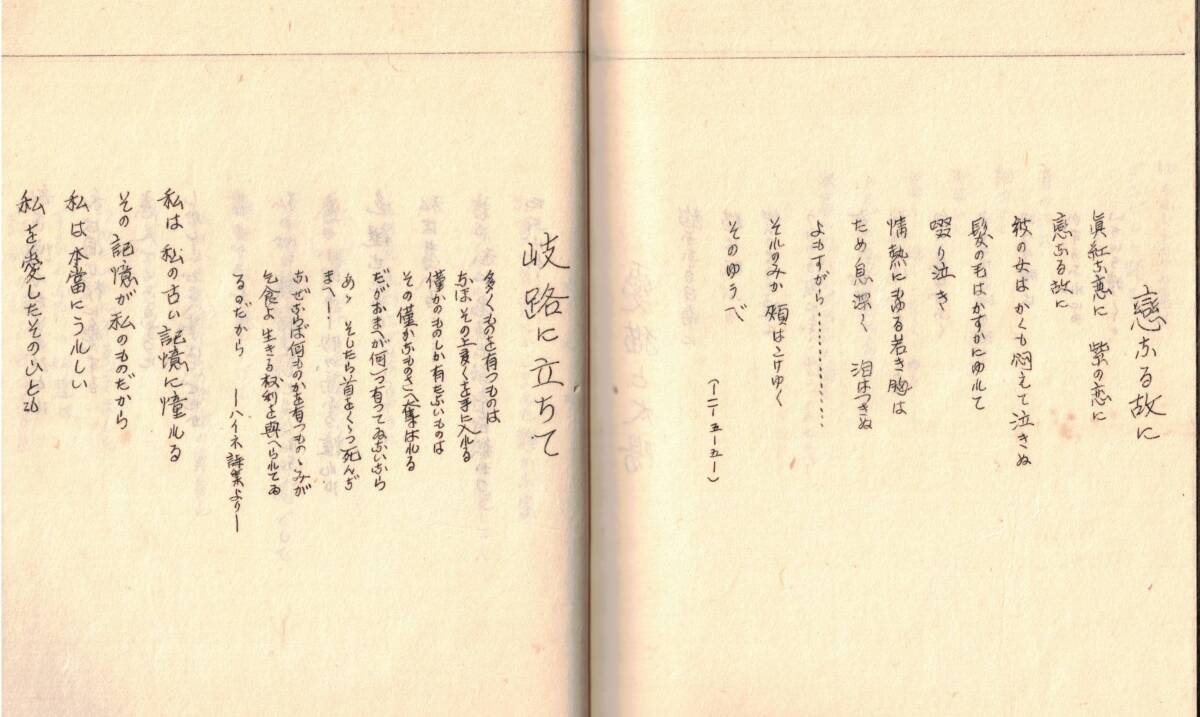 戀ふる故に
眞紅な恋に 紫の恋に
恋ふる故に
彼の女はかくも悶えて泣きぬ
髪の毛はかすかにゆれて
啜り泣き
情熱にもゆる若き胸は
ため息深く 泪はつきぬ
よもすがら…………
それのみか 頬はこけゆく
そのゆうべ
(一二・五・五)
岐路に立ちて
多くものを有つものは
なほその上多くを手に入れる
僅かのものしか有たないものは
その僅かなものさへ奪はれる
だがおまへが何一つ有つてゐないなら
あゝ そしたら首をくくつ死んぢ
まへ!
なぜならば何ものかを有つものゝみが
乞食よ 生きる权利を與へられてゐ
るのだから
―ハイネ詩集より―
私は 私の古い記憶に憧れる
その記憶が私のものだから
私は本當にうれしい
私を愛したそのひとは